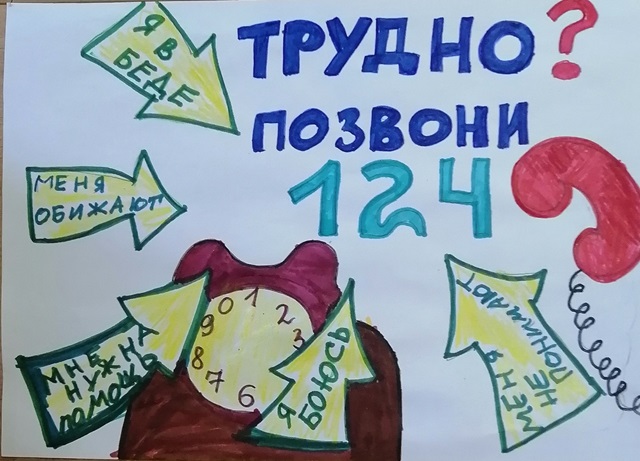 Я В
БЕДЕ
ТРУДНО?
ПОЗВОНИ
124
МЕНЯ
ОБИЖАЮТ
МНЕ
НУЖНА
ПОМОЩЬ
Я БОЮСЬ
МЕНЯ
НЕ
ПОНИМАЮТ
0 1 2
9 3
8
7 6